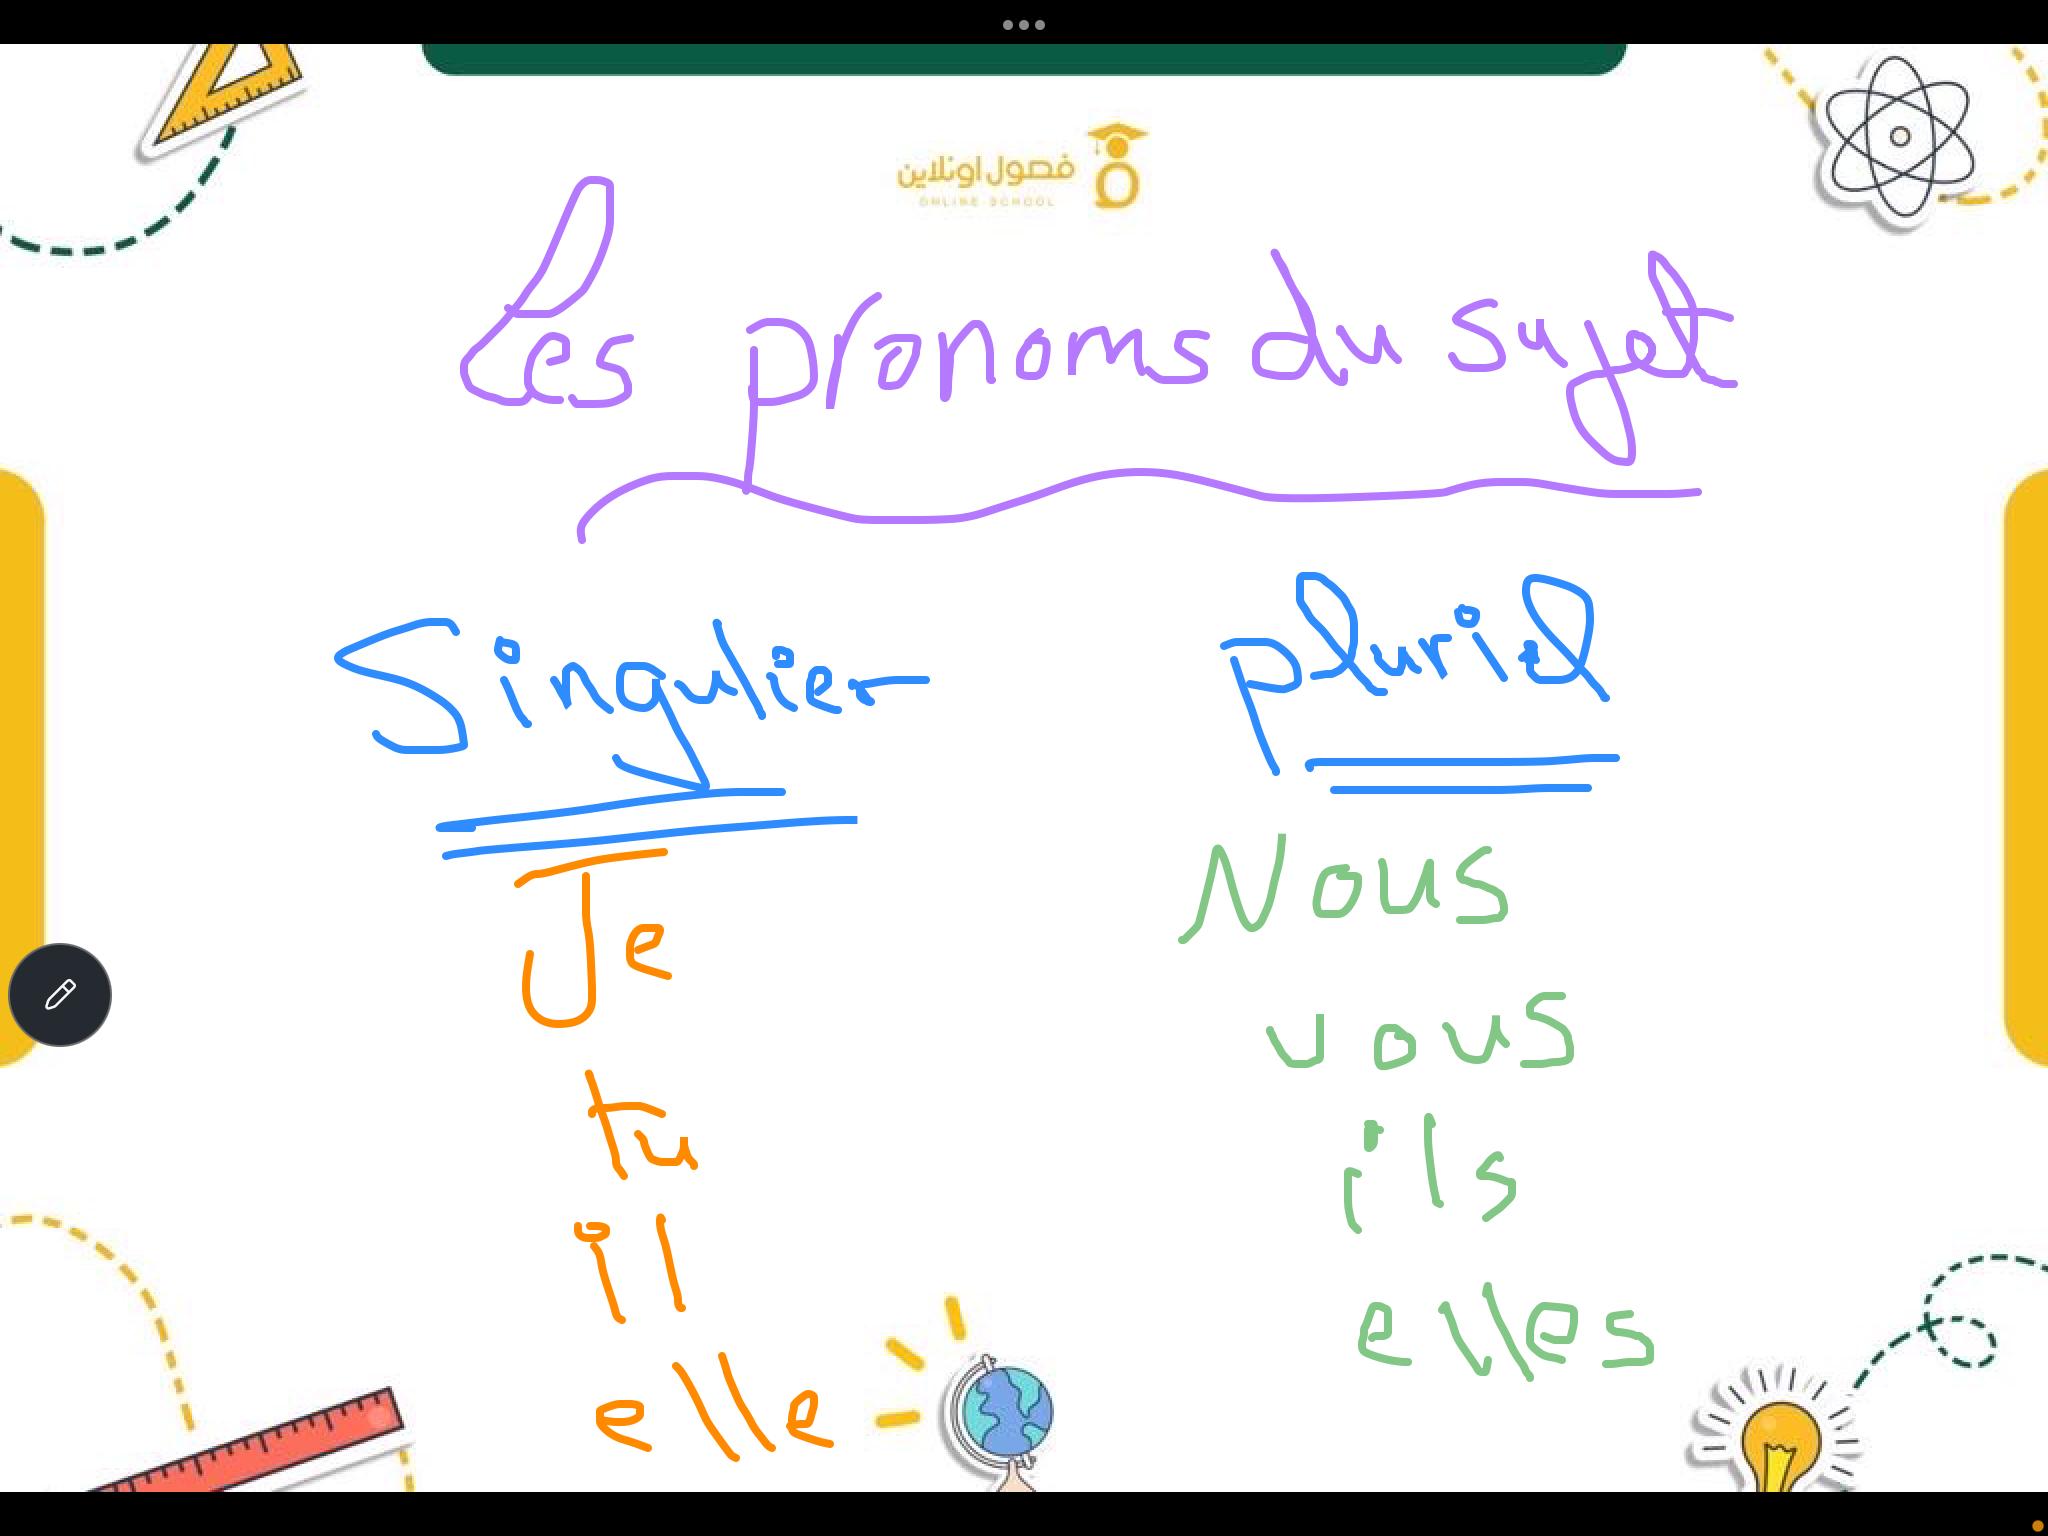 فصول اونلاين
ONLINE SCHOOL
Les pronoms du sujet
Singulier
pluriel
Je
tu
il
elle
Nous
vous
ils
elles